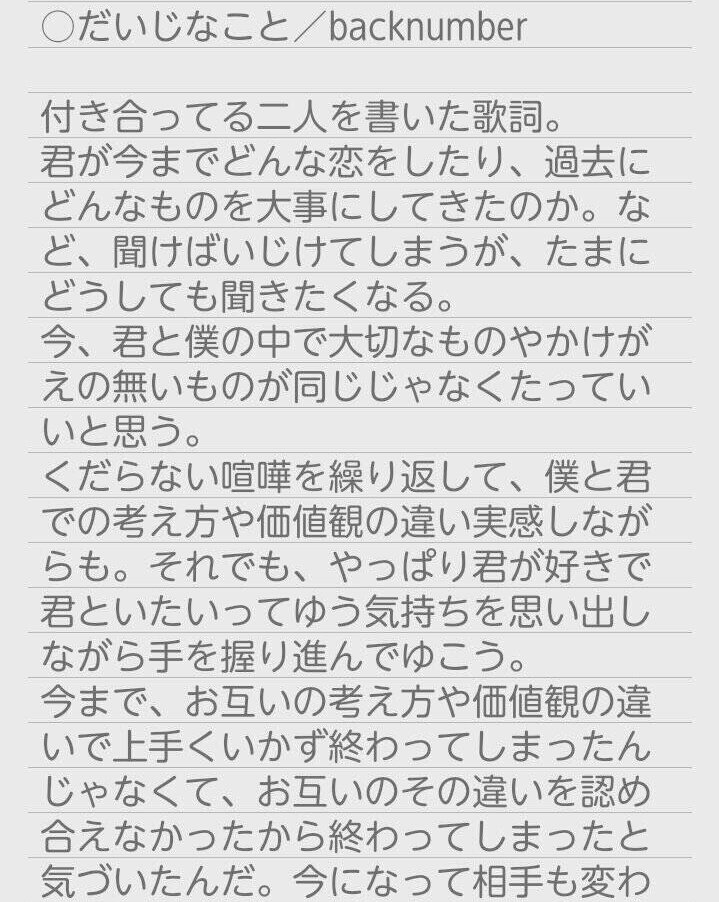 ○だいじなこと／backnumber
付き合ってる二人を書いた歌詞。
君が今までどんな恋をしたり、過去に
どんなものを大事にしてきたのか。な
ど、聞けばいじけてしまうが、たまに
どうしても聞きたくなる。
今、君と僕の中で大切なものやかけが
えの無いものが同じじゃなくたってい
いと思う。
くだらない喧嘩を繰り返して、僕と君
での考え方や価値観の違い実感しなが
らも。それでも、やっぱり君が好きで
君といたいってゆう気持ちを思い出し
ながら手を握り進んでゆこう。
今まで、お互いの考え方や価値観の違
いで上手くいかず終わってしまったん
じゃなくて、お互いのその違いを認め
合えなかったから終わってしまったと
気づいたんだ。今になって相手も変わ